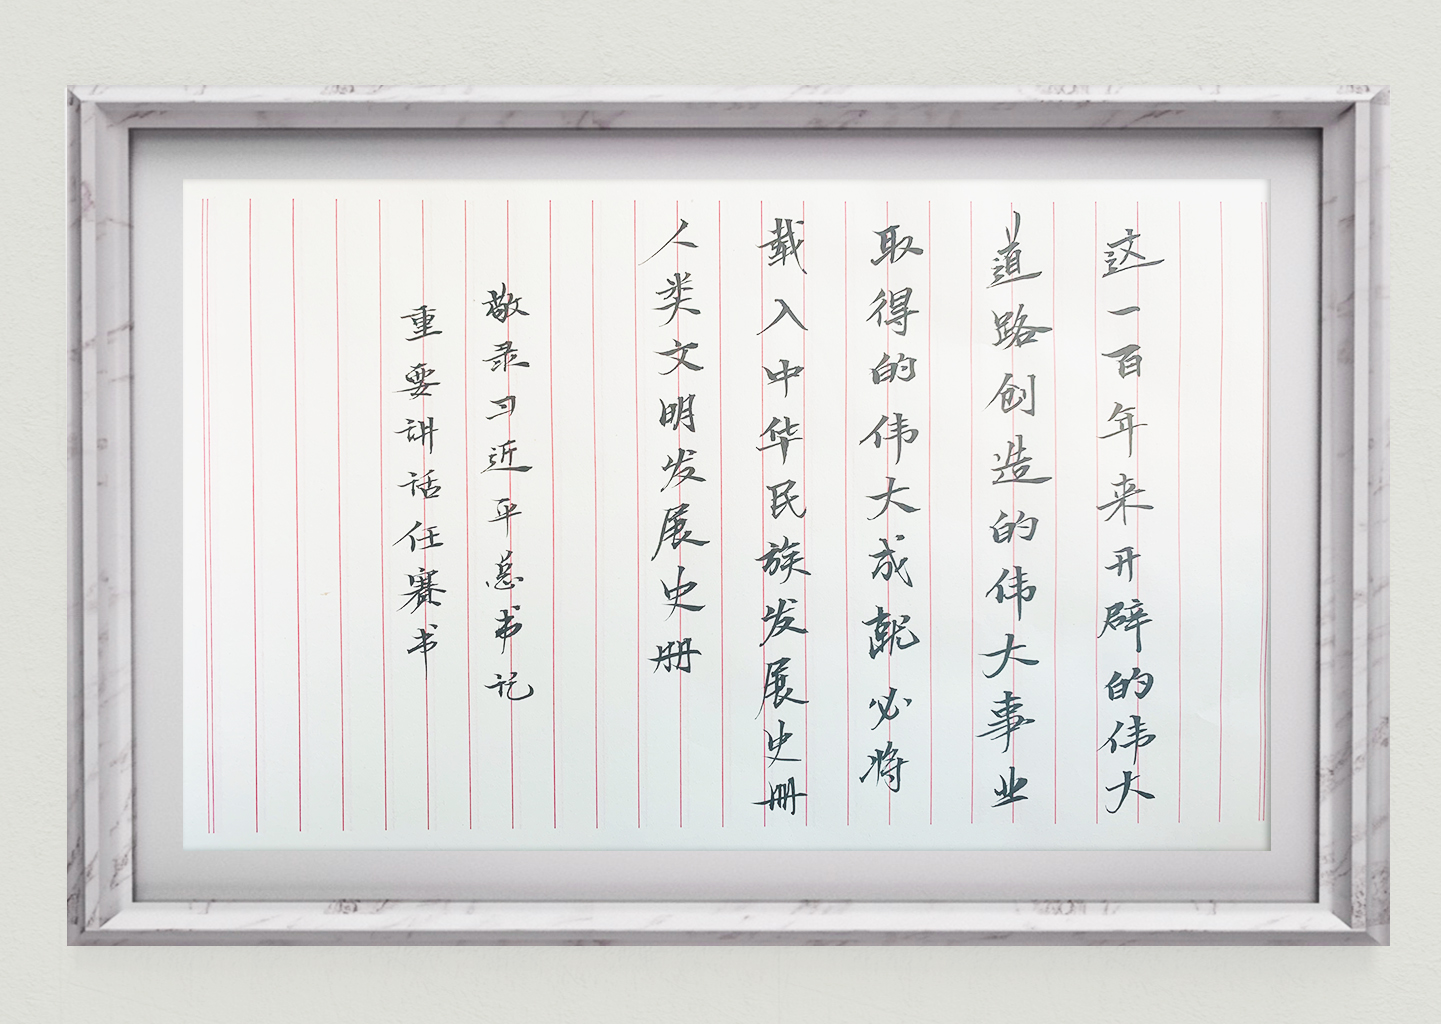 这一百年来开辟的伟大
道路创造的伟大事业
取得的伟大成就必将
载入中华民族发展史册
人类文明发展史册
敬录习近平总书记
重要讲话任赛书